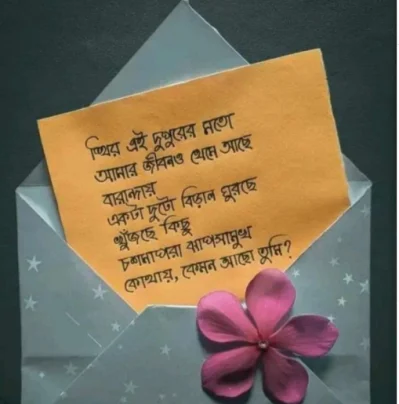 স্থির এই দুপুরের মতো
আমার জীবনও থেমে আছে
বারান্দায়
একটা দুটো বিড়াল ঘুরছে
খুঁজছে কিছু
চশমাপরা ঝাপসামুখ
কোথায়, কেমন আছো তুমি?